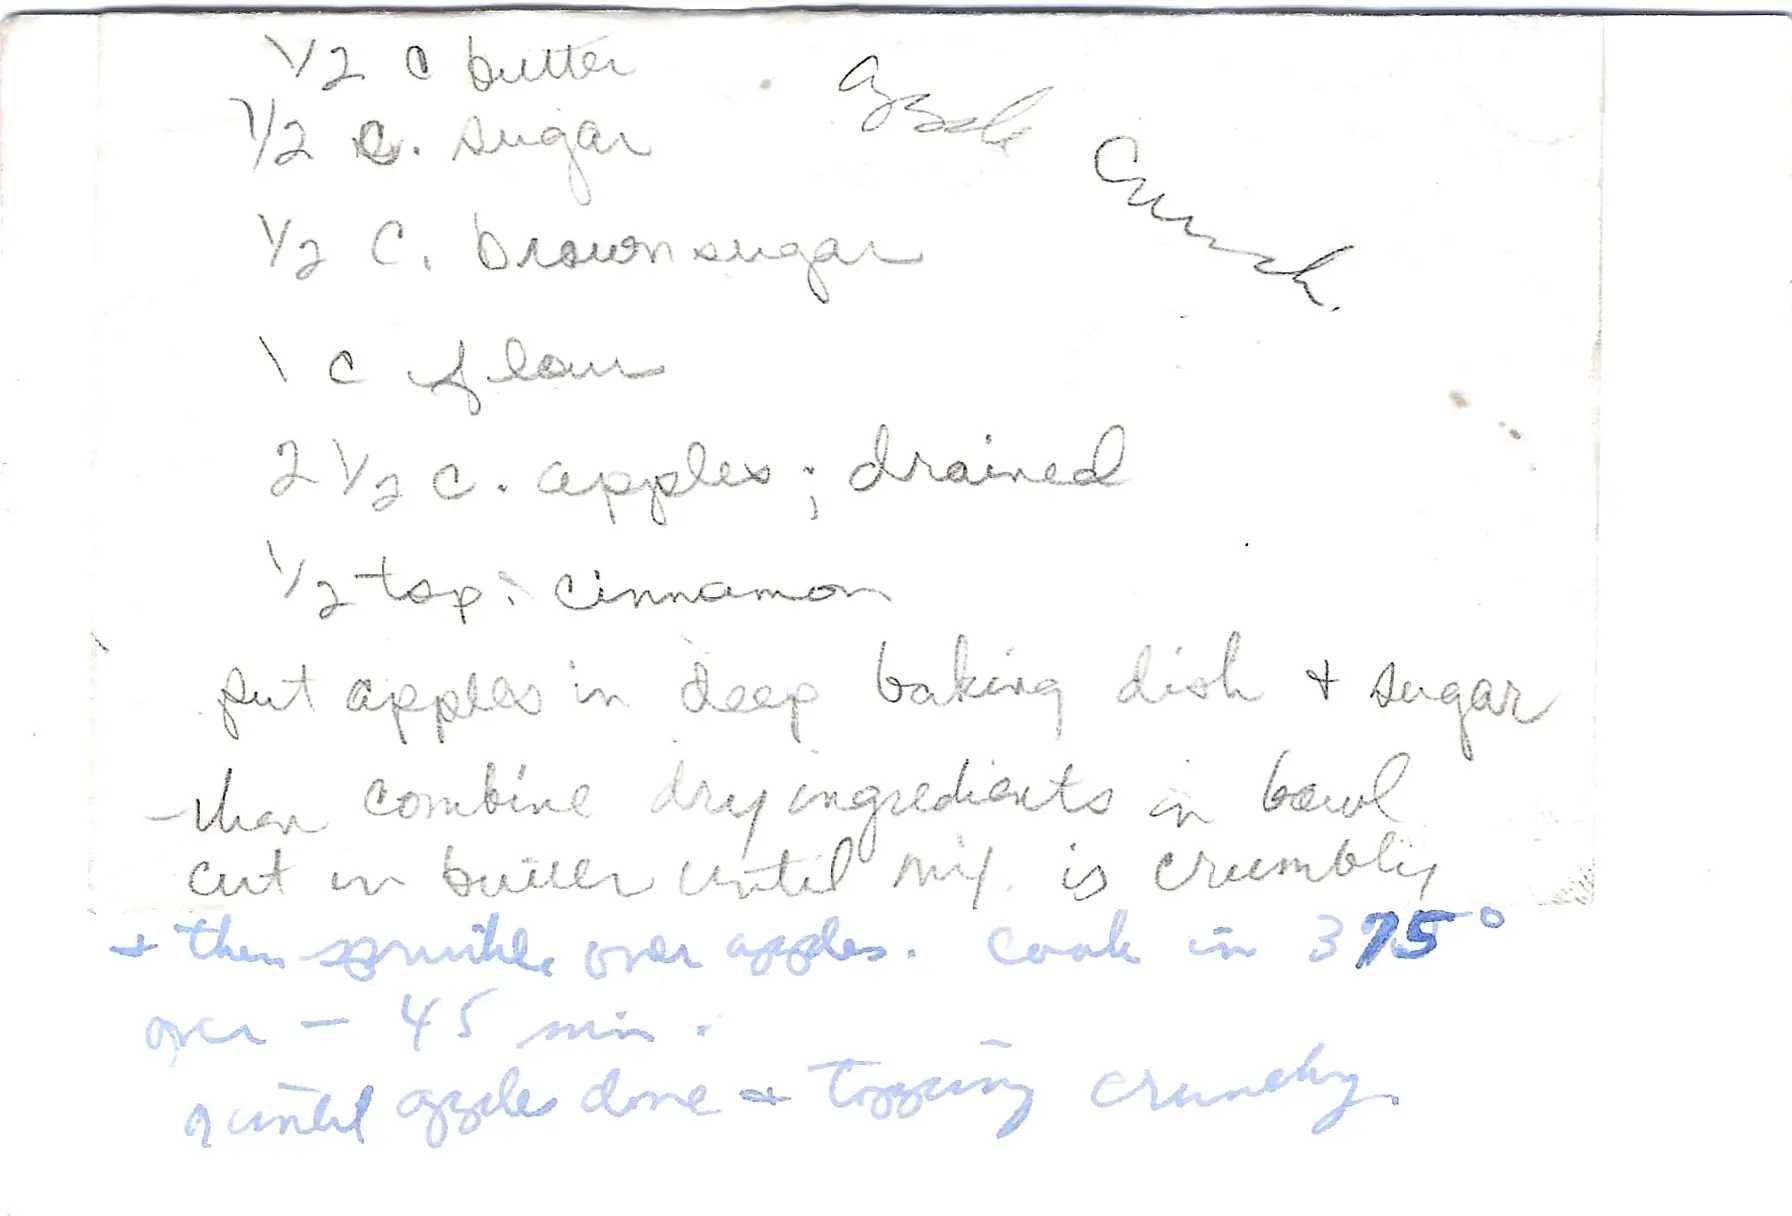 Apple Crunch.
1/2 c butter
1/2 c. sugar
1/2 C. brown sugar
1 c flour
2 1/2 c. apples; drained
1/2 tsp. cinnamon
put apples in deep baking dish + sugar
then combine dry ingredients in bowl
cut in butter until mix. is crumbly
+ then sprinkle over apples. Cook in 375°
oven - 45 min.
or until apples done + topping crunchy.